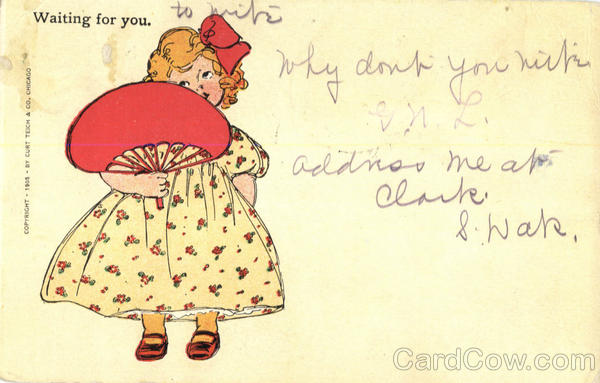 Waiting for you.
to write
Why dont you write
G. N. L.
address me at
Clark.
S. Dak.
COPYRIGHT - 1905 - BY CURT TEICH & CO., CHICAGO
CardCow.com